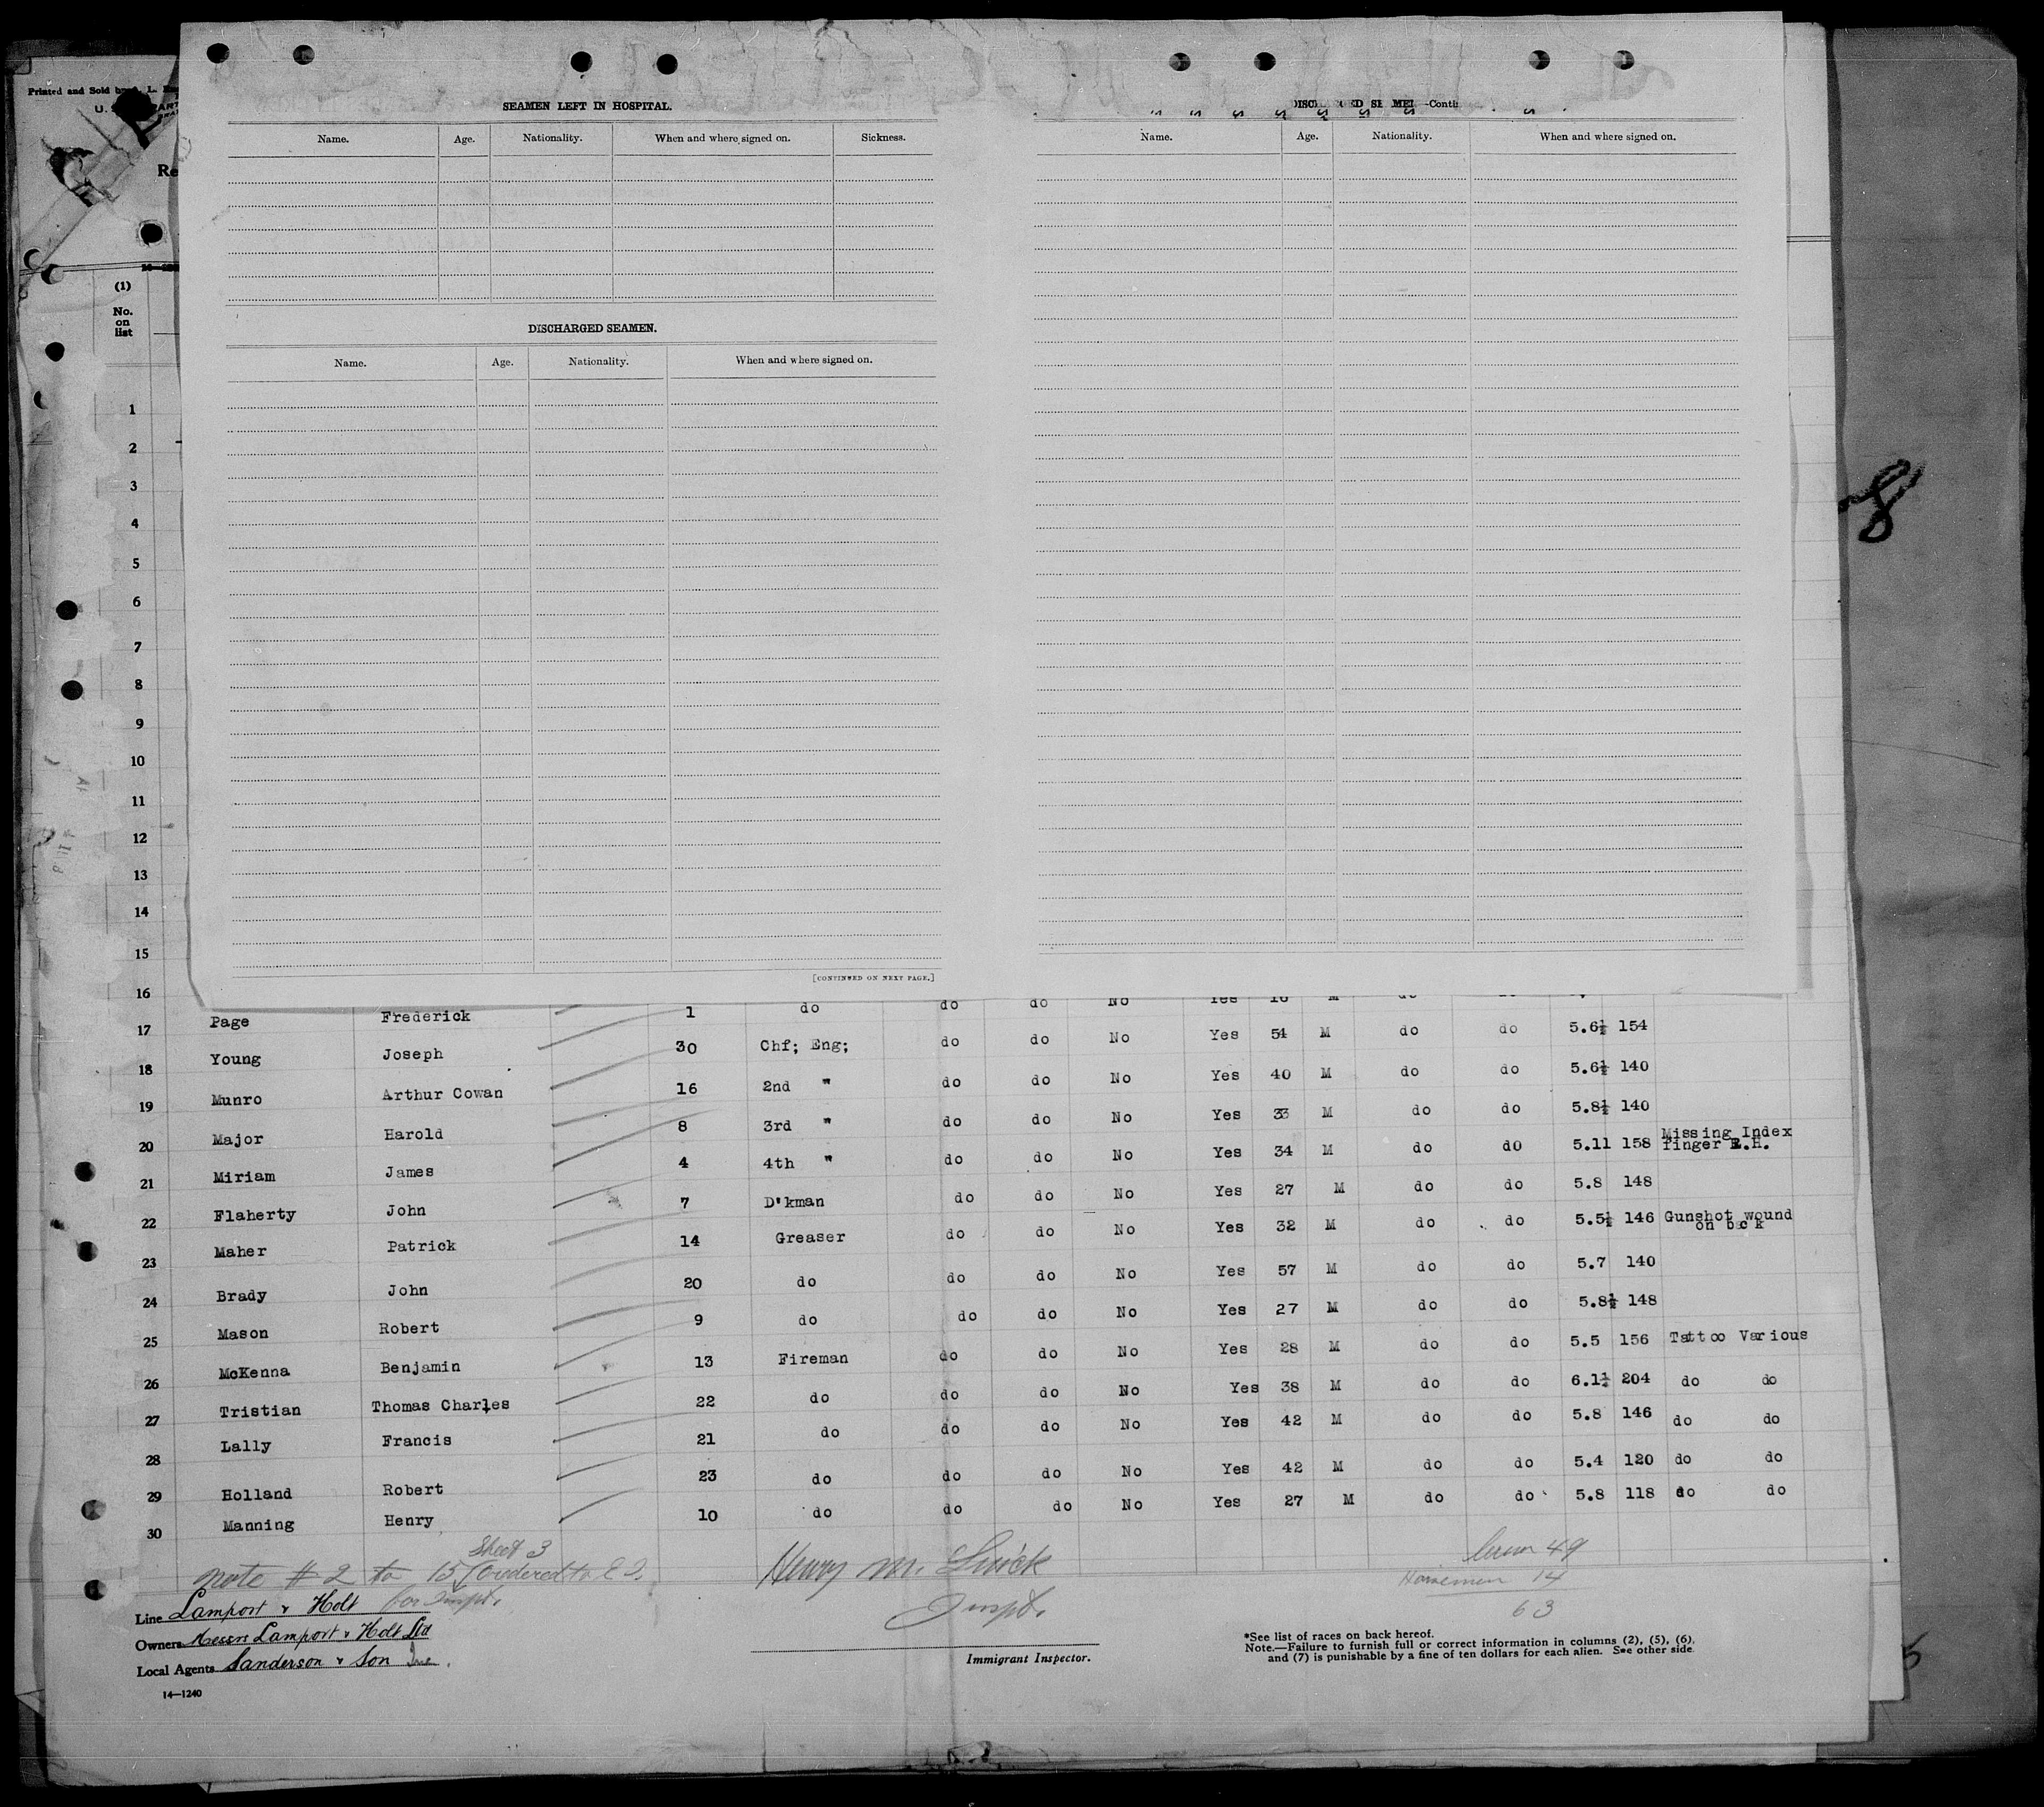 Printed and Sold by L.
U. S.
Re
SEAMEN LEFT IN HOSPITAL.
Name. Age. Nationality. When and where signed on. Sickness.
DISCHARGED SEAMEN.
Name. Age. Nationality. When and where signed on.
[CONTINUED ON NEXT PAGE.]
Name. Age. Nationality. When and where signed on.
8
(1)
No.
on
list
1
2
3
4
5
6
7
8
9
10
11
12
13
14
15
16
17 Page Frederick 1 do do do No Yes 16 M do do
18 Young Joseph 30 Chf; Eng; do do No Yes 54 M do do 5.6½ 154
19 Munro Arthur Cowan 16 2nd " do do No Yes 40 M do do 5.6½ 140
20 Major Harold 8 3rd " do do No Yes 33 M do do 5.8½ 140
21 Miriam James 4 4th " do do No Yes 34 M do do 5.11 158 Missing Index finger R.H.
22 Flaherty John 7 D'kman do do No Yes 27 M do do 5.8 148
23 Maher Patrick 14 Greaser do do No Yes 32 M do do 5.5½ 146 Gunshot wound on back
24 Brady John 20 do do do No Yes 57 M do do 5.7 140
25 Mason Robert 9 do do do No Yes 27 M do do 5.8½ 148
26 McKenna Benjamin 13 Fireman do do No Yes 28 M do do 5.5 156 Tattoo Various
27 Tristian Thomas Charles 22 do do do No Yes 38 M do do 6.1½ 204 do do
28 Lally Francis 21 do do do No Yes 42 M do do 5.8 146 do do
29 Holland Robert 23 do do do No Yes 42 M do do 5.4 120 do do
30 Manning Henry 10 do do do No Yes 27 M do do 5.8 118 do do
Sheet 3
note # 2 to 15 ordered to E I.
for Inspt.
Henry M.
Inspt.
49
Horsemen 14
63
Line Lamport & Holt
Owners Messrs Lamport & Holt Ltd
Local Agents Sanderson & Son Inc.
14—1240
Immigrant Inspector.
*See list of races on back hereof.
Note.—Failure to furnish full or correct information in columns (2), (5), (6),
and (7) is punishable by a fine of ten dollars for each alien. See other side